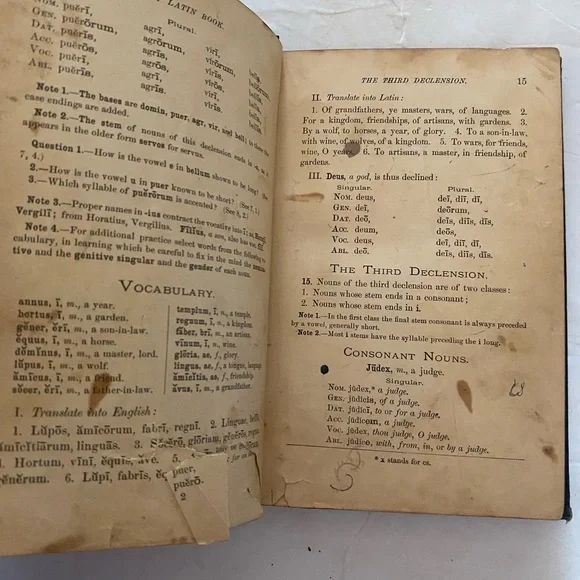 LATIN BOOK.
Plural.
NOM. puĕrī, agrī, virī,
GEN. puĕrōrum, agrōrum, virōrum,
DAT. puĕrīs, agrīs, virīs,
ACC. puĕrōs, agrōs, virōs,
VOC. puĕrī, agrī, virī,
ABL. puĕrīs, agrīs, virīs,
Note 1.—The bases are domin, puer, agr, vir, and bell; to these
case endings are added.
Note 2.—The stem of nouns of this declension ends in
appears in the older form servos for servus.
Question 1.—How is the vowel e in bellum shown to be long? (See
7, 4.)
2.—How is the vowel u in puer known to be short? (See 7, 1.)
3.—Which syllable of puĕrōrum is accented? (See 8, 2.)
Note 3.—Proper names in -ius contract the vocative into ī: as,
Vergīlī; from Horatius, Vergilius. Fīlĭus, a son, has also
Note 4.—For additional practice select words from the following
cabulary, in learning which be careful to fix in the mind the
tive and the genitive singular and the gender of each noun.
VOCABULARY.
annus, ī, m., a year.
hortus, ī, m., a garden.
gĕner, ĕrī, m., a son-in-law.
ĕquus, ī, m., a horse.
dŏmĭnus, ī, m., a master, lord.
lŭpus, ī, m., a wolf.
ămīcus, ī, m., a friend.
sŏcer, ĕrī, m., a father-in-law.
templum, ī, n., a temple.
regnum, ī, n., a kingdom.
făber, brī, m., an artisan.
vīnum, ī, n., wine.
glōria, ae, f., glory.
lingua, ae, f., a tongue, language.
ămīcĭtia, ae, f., friendship.
ăvus, ī, m., a grandfather.
I. Translate into English:
1. Lŭpōs, ămīcōrum, fabrī, regnī. 2. Linguae,
ămīcĭtiārum, linguās. 3. Sŏcĕrō, glōriam, gĕnĕrōs, regnīs.
4. Hortum, vīnī, ĕquīs, ăvĕ. 5.
gĕnĕrum. 6. Lŭpī, fabrīs, ĕq
puer,
puĕrō.
2
THE THIRD DECLENSION. 15
II. Translate into Latin:
1. Of grandfathers, ye masters, wars, of languages. 2.
For a kingdom, friendships, of artisans, with gardens. 3.
By a wolf, to horses, a year, of glory. 4. To a son-in-law,
with wine, of wolves, of a kingdom. 5. To wars, for friends,
wine, O years. 6. To artisans, a master, in friendship, of
gardens.
III. Deus, a god, is thus declined:
Singular. Plural.
NOM. deus, deī, diī, dī,
GEN. deī, deōrum,
DAT. deō, deīs, diīs, dīs,
ACC. deum, deōs,
VOC. deus, deī, diī, dī,
ABL. deō, deīs, diīs, dīs.
THE THIRD DECLENSION.
15. Nouns of the third declension are of two classes:
1. Nouns whose stem ends in a consonant;
2. Nouns whose stem ends in i.
Note 1.—In the first class the final stem consonant is always preceded
by a vowel, generally short.
Note 2.—Most i stems have the syllable preceding the i long.
CONSONANT NOUNS.
Jūdex, m., a judge.
Singular.
NOM. jūdex,* a judge,
GEN. jūdĭcĭs, of a judge,
DAT. jūdĭcī, to or for a judge,
ACC. jūdĭcem, a judge,
VOC. jūdex, thou judge, O judge,
ABL. jūdĭce, with, from, in, or by a judge.
* x stands for cs.